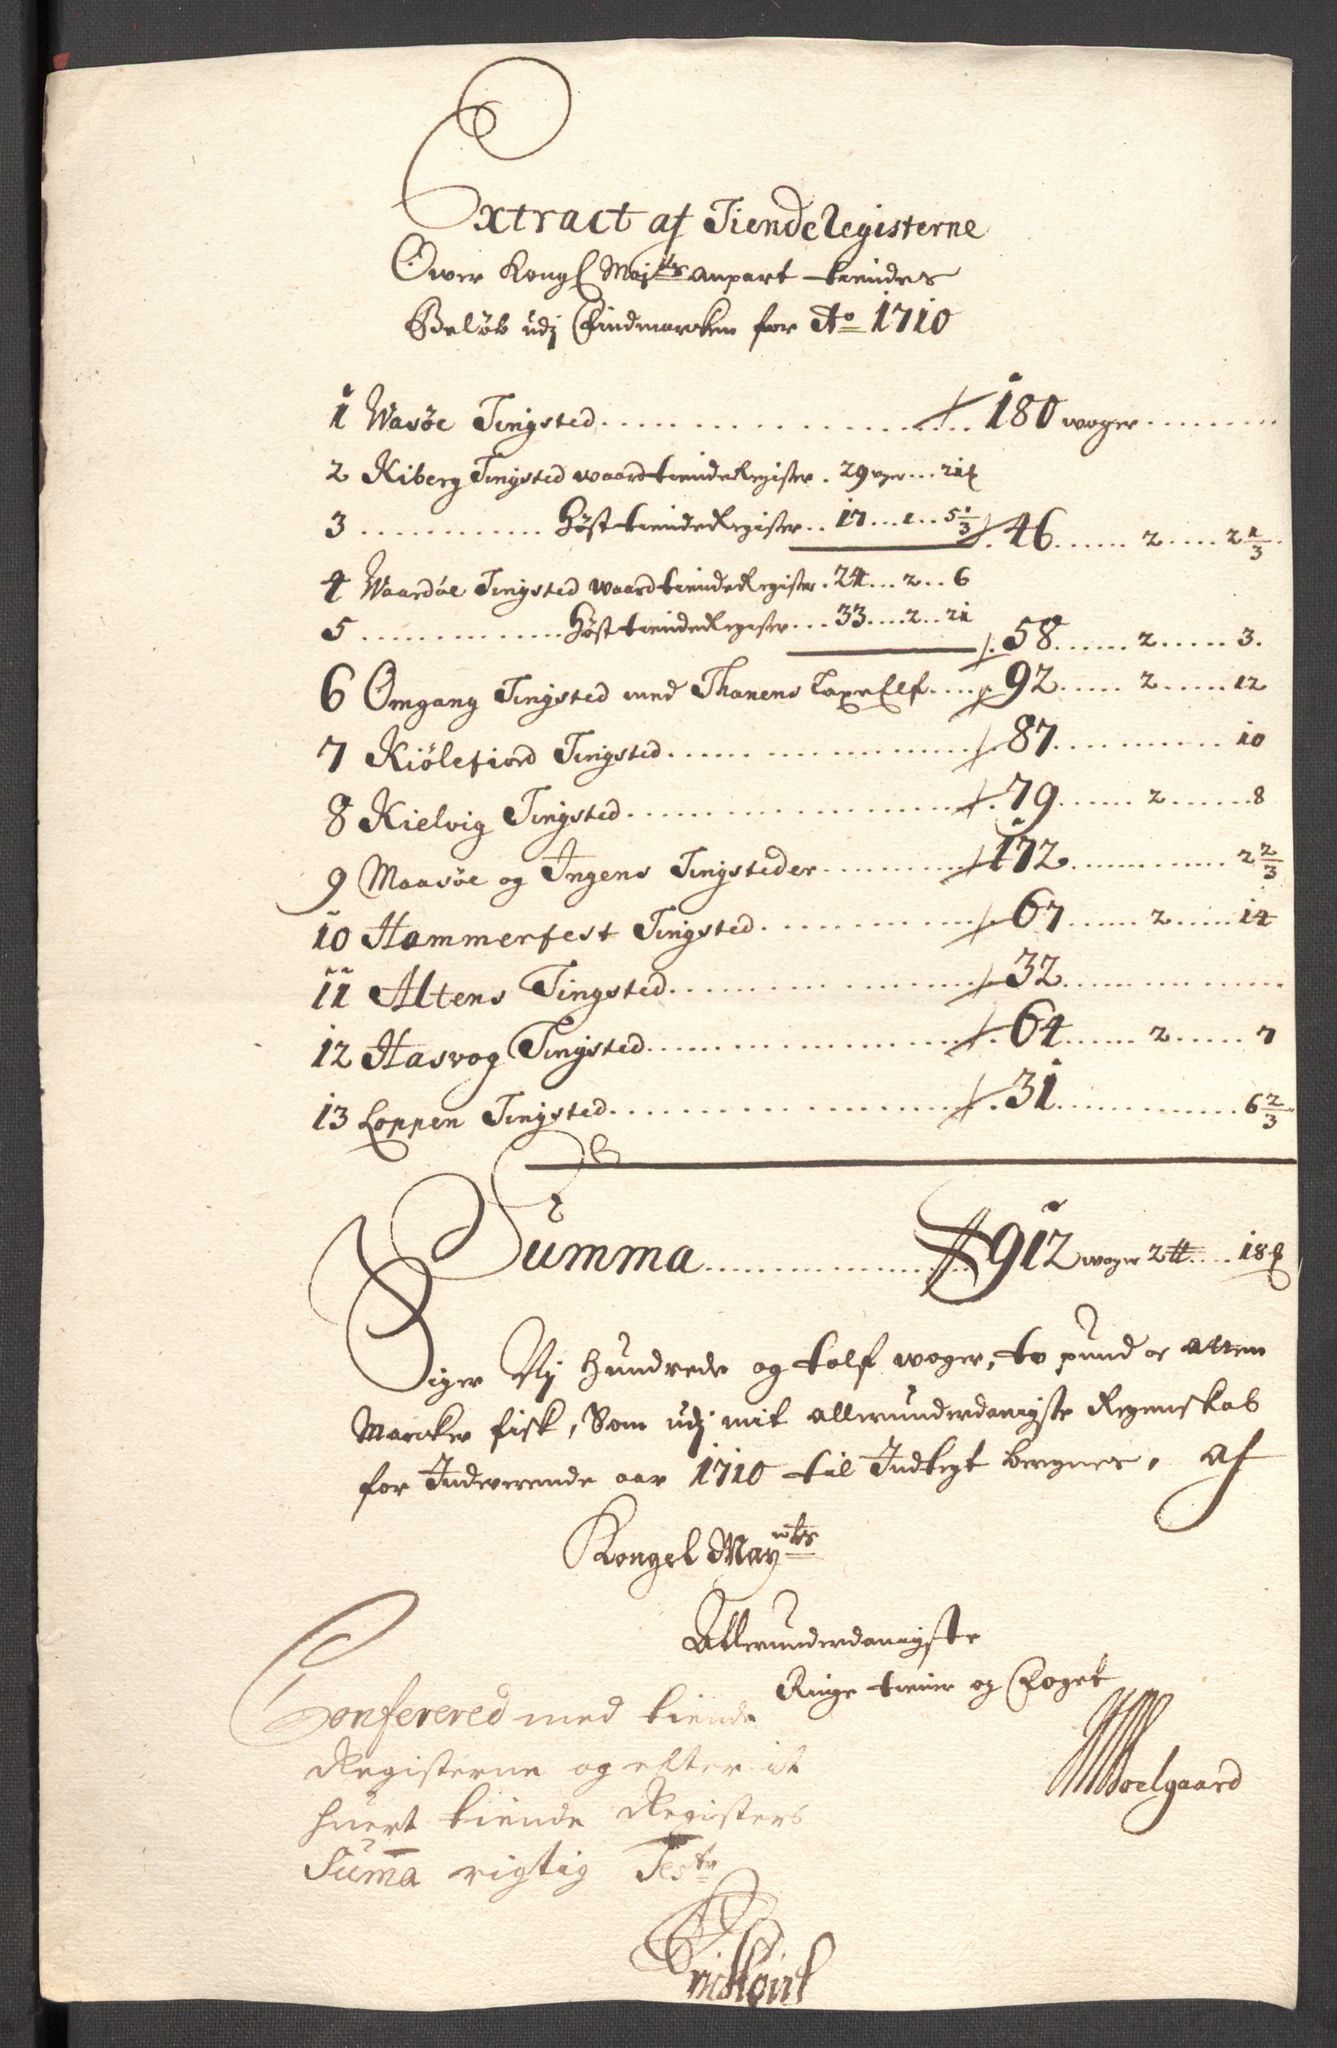 Extract af Tiende Registerne
Over Kongl Maj^ts anpart tiendes
Beløb udj Findmarcken for A^o 1710
1 Wasöe Tingsted ................ 180 woger ........
2 Kiberg Tingsted waartiende Register . 29 wger ... 21
3 ............ Høst tiende Register .. 17 ... 1 .. 5 1/3 . 46 ...... 2 ..... 2 1/3
4 Waardöe Tingsted waartiende Register . 24 ... 2 .. 6
5 ............ Høst tiende Register ... 33 .... 2 .. 21 . 58 ...... 2 ...... 3.
6 Omgang Tingsted med Thanens Laxe Elf .... 92 ...... 2 ...... 12
7 Kiölefiord Tingsted ................ 87 ............ 10
8 Kielvig Tingsted ................ 79 ....... 2 ....... 8
9 Maasöe og Ingens Tingsteder .......... 172 ............ 2 2/3
10 Hammerfest Tingsted ............ 67 ....... 2 ...... 14
11 Altens Tingsted ................ 32 ................
12 Hasvog Tingsted ................ 64 ....... 2 ...... 7
13 Loppen Tingsted ................ 31 ............ 6 2/3
Summa ................ 912 woger 2 ℔ .... 18
Siger Nj Hundrede og tolf woger, to pund oc atten
Marcker fisk, Som udj mit allerunderdanigste Regenskab
for Indeværende aar 1710 til Indtegt beregnes. Af
Kongel May^ts
Allerunderdanigste
Ringe tiener og Foget
Soelgaard
Conferered med tiende
Registerne og efter it
huert tiende Registers
Summa rigtig Test